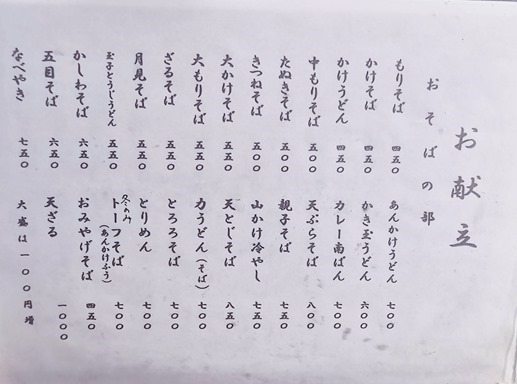 お献立
おそばの部
もりそば 四五〇
かけそば 四五〇
かけうどん 四五〇
中もりそば 五五〇
たぬきそば 五〇〇
きつねそば 五〇〇
大かけそば 五五〇
大もりそば 五五〇
ざるそば 五五〇
月見そば 五五〇
玉子とうじうどん 五五〇
かしわそば 六五〇
五目そば 六五〇
なべやき 七五〇
あんかけうどん 七〇〇
かき玉うどん 六〇〇
カレー南ばん 七〇〇
天ぷらそば 八〇〇
親子そば 七五〇
山かけ冷やし 七五〇
天とじそば 八五〇
力うどん(そば) 七〇〇
とろろそば 七〇〇
とりめん 七〇〇
冬のみ トーフそば(あんかけふう) 七〇〇
おみやげそば 四五〇
天ざる 一〇〇〇
大盛は一〇〇円増